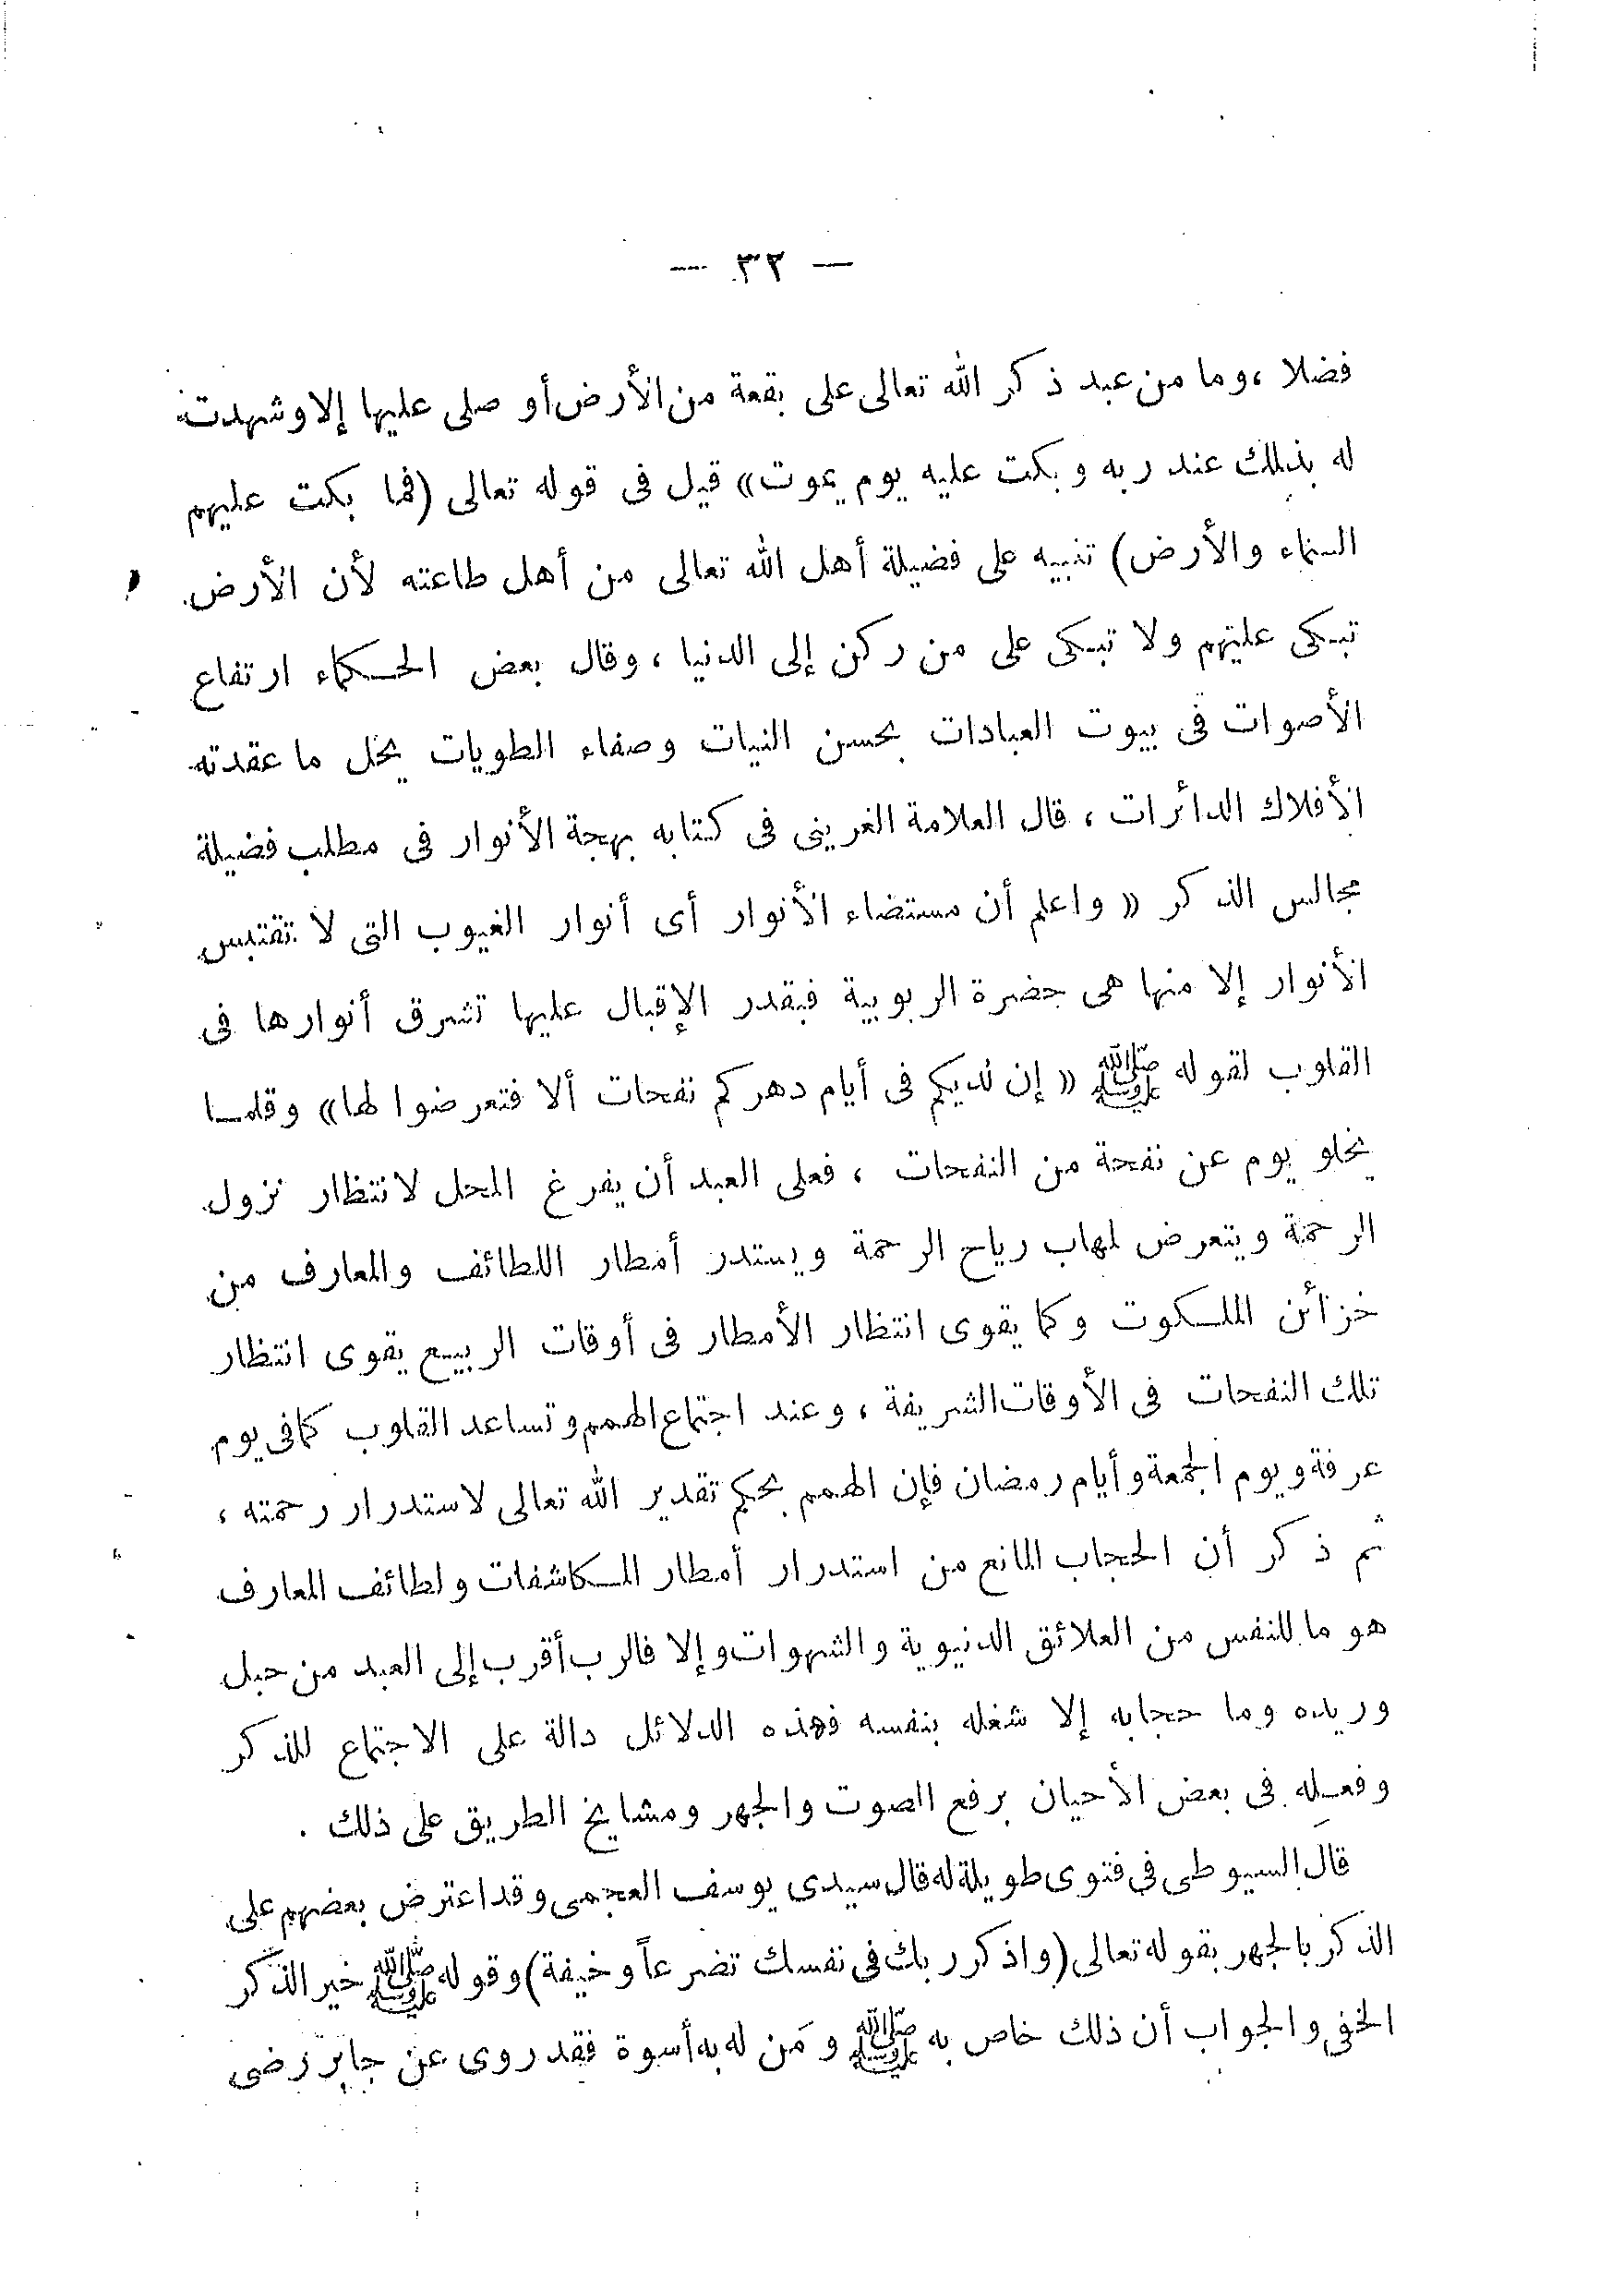 — ٣٢ —
فضلا ، وما من عبد ذكر الله تعالى على بقعة من الأرض أو صلى عليها إلا وشهدت
له بذلك عند ربه وبكت عليه يوم يموت» قيل فى قوله تعالى (فما بكت عليهم
السماء والأرض) تنبيه على فضيلة أهل الله تعالى من أهل طاعته لأن الأرض
تبكى عليهم ولا تبكى على من ركن إلى الدنيا ، وقال بعض الحكماء ارتفاع
الأصوات فى بيوت العبادات بحسن النيات وصفاء الطويات يحل ما عقدته
الأفلاك الدائرات ، قال العلامة الغرينى فى كتابه بهجة الأنوار فى مطلب فضيلة
مجالس الذكر « واعلم أن مستضاء الأنوار أى أنوار الغيوب التى لا تقتبس
الأنوار إلا منها هى حضرة الربوبية فبقدر الإقبال عليها تشرق أنوارها فى
القلوب لقوله ﷺ « إن لديكم فى أيام دهركم نفحات ألا فتعرضوا لها» وقلما
يخلو يوم عن نفحة من النفحات ، فعلى العبد أن يفرغ المحل لانتظار نزول
الرحمة ويتعرض لمهاب رياح الرحمة ويستدر أمطار اللطائف والمعارف من
خزائن الملكوت وكما يقوى انتظار الأمطار فى أوقات الربيع يقوى انتظار
تلك النفحات فى الأوقات الشريفة ، وعند اجتماع الهمم وتساعد القلوب كما فى يوم
عرفة ويوم الجمعة وأيام رمضان فإن الهمم بحكم تقدير الله تعالى لاستدرار رحمته ،
ثم ذكر أن الحجاب المانع من استدرار أمطار المكاشفات ولطائف المعارف
هو ما للنفس من العلائق الدنيوية والشهوات وإلا فالرب أقرب إلى العبد من حبل
وريده وما حجابه إلا شغله بنفسه فهذه الدلائل دالة على الاجتماع للذكر
وفعله فى بعض الأحيان برفع الصوت والجهر ومشايخ الطريق على ذلك .
قال السيوطى فى فتوى طويلة له قال سيدى يوسف العجمى وقد اعترض بعضهم على
الذكر بالجهر بقوله تعالى (واذكر ربك فى نفسك تضرعاً وخيفة) وقوله ﷺ خير الذكر
الخفى والجواب أن ذلك خاص به ﷺ ومَن له به أسوة فقد روى عن جابر رضى